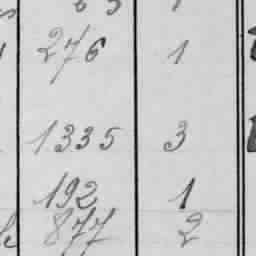 276 1
1335 3
192 1
877 2